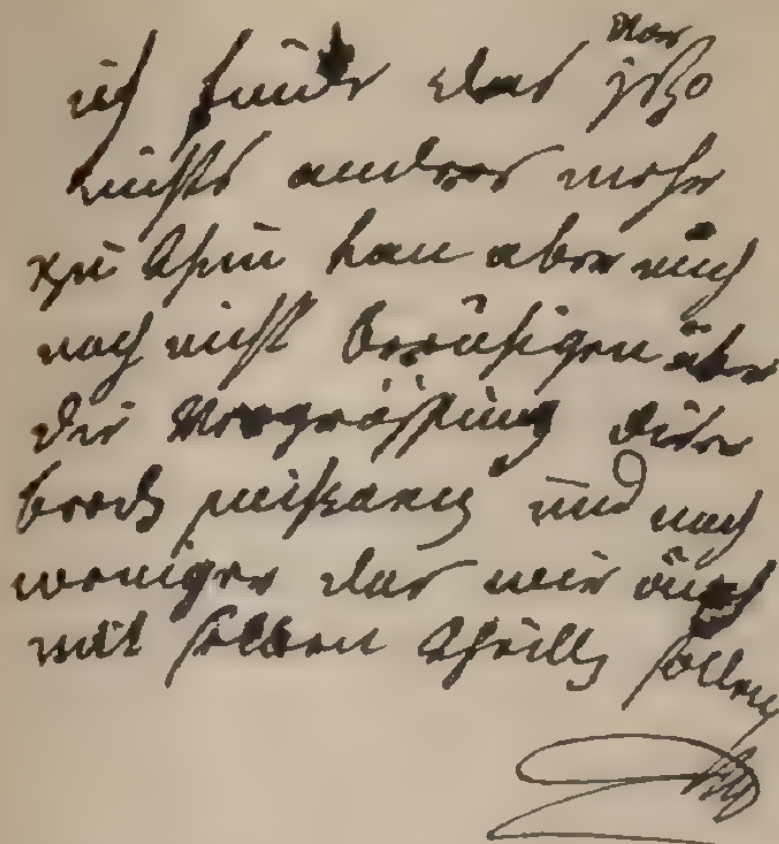 vor
ich finde das jezo
nichts anderes mehr
zu thun kan aber mich
noch nicht beruhigen über
die vergrössung diser
puissancen und noch
weniger das wir auch
mit selben theillen sollen